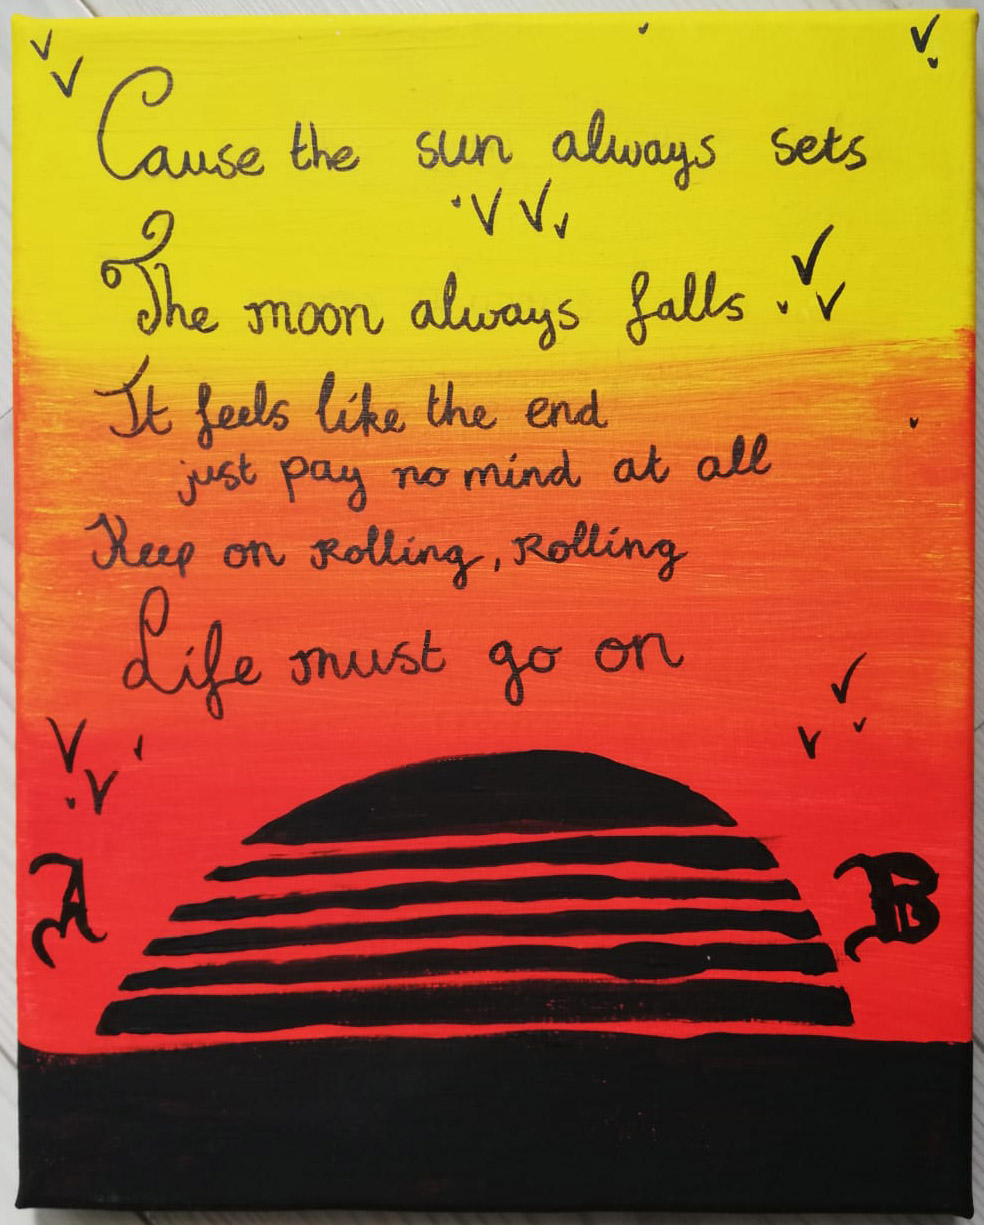 Cause the sun always sets
The moon always falls
It feels like the end
just pay no mind at all
Keep on rolling, rolling
Life must go on
A B